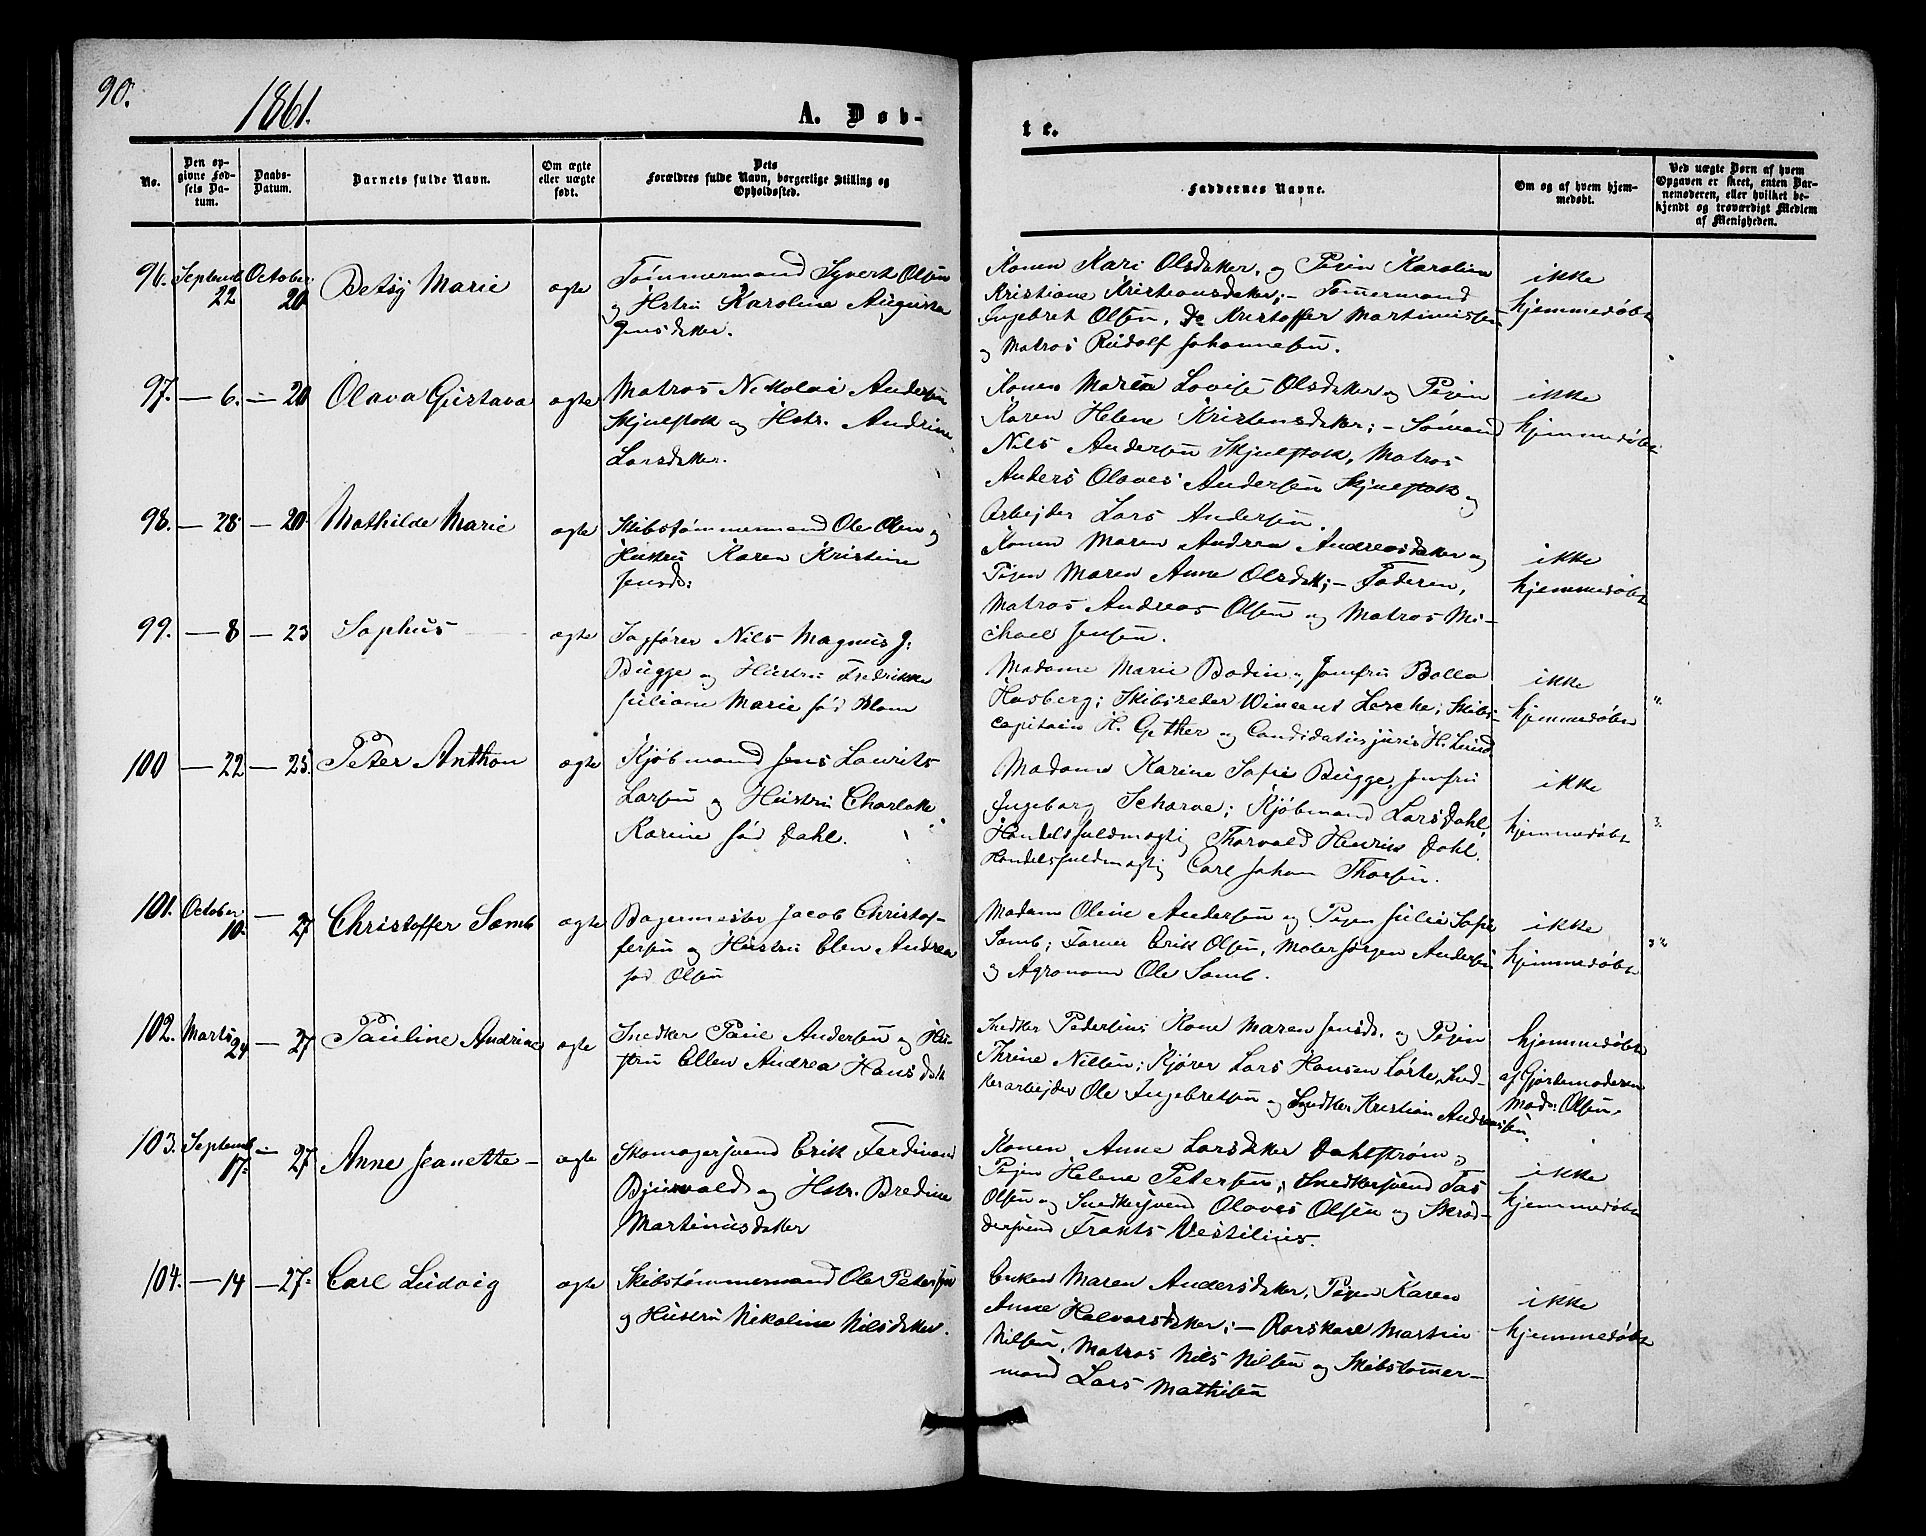 90.
1861.
A. Døb-
te.
No.
Den op-
givne Fød-
sels Da-
tum.
Daabs-
Datum.
Barnets fulde Navn.
Om ægte
eller uægte
født.
Dets
Forældres fulde Navn, borgerlige Stilling og
Opholdssted.
Faddernes Navne.
Om og af hvem hjem-
medøbt.
Ved uægte Børn af hvem
Opgaven er skeet, enten Bar-
nemoderen, eller hvilket be-
kjendt og troværdigt Medlem
af Menigheden.
96. Septemb. 22 October 20 Betsy Marie ægte
Tømmermand Syvert Olsen
og Hstru Karoline Augusta
Jensdatter.
Konen Kari Olsdatter, og Pigen Karoline
Kristiane Kristiansdatter; – Tømermand
Ingebret Olsen, Do Kristoffer Martinissen
og Matros Rudolf Johannesen.
ikke
hjemmedøbt
97. — 6. — 20 Olava Gustava ægte
Matros Nikolai Andersen
Skjulstok og Hstr. Andrine
Larsdatter.
Konen Maren Lovise Olsdatter og Pigen
Karen Helene Kristensdatter; – Sømand
Nils Andersen Skjulstok, Matros
Anders Olaves Andersen Skjulstok og
Arbejder Lars Andersen.
ikke
hjemmedøbt
98. — 28. — 20 Mathilde Marie ægte
Skibstømmermand Ole Olsen og
Hustru Karen Kristine
Jensd:
Konen Maren Andrea Andreasdatter og
Pigen Maren Anne Olsdatt; – Faderen,
Matros Andreas Olsen og Matros Mi-
chael Jensen.
ikke
hjemmedøbt
99. — 8 — 23 Sophus ægte
Sagfører Nils Magnus J.
Bugge og Hustru Fredrikke
Juliane Marie fød Blom
Madame Marie Bodin og Jomfru Bolla
Hasberg; Skibsreder Wincent Lerche; Skibs-
capitain H. Gether og Candidatus juris H. Lund.
ikke
hjemmedøbt
100 — 22 — 25. Peter Anthon ægte
Kjøbmand Jens Laurits
Larsen og Hustru Charlotte
Karine fød Dahl.
Madame Karine Sofie Bugge, Jomfru
Ingeborg Scharve; Kjøbmand Lars Dahl,
Handelsfuldmægtig Thorvald Henrik Dahl.
Handelsfuldmægtig Carl Johan Thorsen.
ikke
hjemmedøbt
3.
101. October 10. — 27 Christoffer Samb ægte
Bagermester Jacob Christof-
fersen og Hustru Elen Andrea
fød Olsen
Madam Oline Andersen og Pigen Julie Sofie
Samb; Farver Erik Olsen, Maler Jørgen Andersen
og Agronom Ole Samb.
ikke
hjemmedøbt
102. Marts 24 — 27 Pauline Andrine ægte
Snedker Paul Andersen og Hu-
stru Ellen Andrea Hansdatt
Snedker Pedersens Kone Maren Jensd. og Pigen
Thrine Nilsen; Kjører Lars Hansen Lørte, Sned-
kerarbejder Ole Ingebretsen og Snedker Kristian Andreassen.
hjemmedøbt
af Gjortemoderen
Mad: Olsen.
103. Septemb. 17. — 27 Anne Jeanette – ægte
Skomagersvend Erik Ferdinand
og Hstr. Bredine
Martinusdatter
Konen Anne Larsdatter Dahlstrøm og
Pigen Helene Petersen; Snedkersvend
Olsen og Snedkersvend Olaves Olsen og Skræd-
dersvend Frants Vestilius.
ikke
hjemmedøbt
104. — 14 — 27. Carl Ludvig ægte
Skibstømmermand Ole Petersen
og Hustru Nikoline Nilsdatter.
Enken Maren Andersdatter, Pigen Karen
Anne Halvorsdatter; – Rorskarl Martin
Nilsen, Matros Nils Nilsen og Skibstømer-
mand Lars Mathisen
ikke
hjemmedøbt